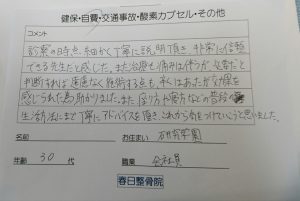 健保・自費・交通事故・酸素カプセル・その他
コメント
診察の時点、細かく丁寧に説明頂き、非常に信頼
できる先生だと感じた。また治療も痛みは伴うが、必要だと
判断すれば遠慮なく施術する点も、私にはあったか効果を
感じられた為助かりました。また、座り方や寝方などの普段の
生活方法にまで丁寧にアドバイスを頂き、これから気をつけていこうと思いました。
名前
お住まい 研究学園
年齢 30 代
職業 会社員
春日整骨院